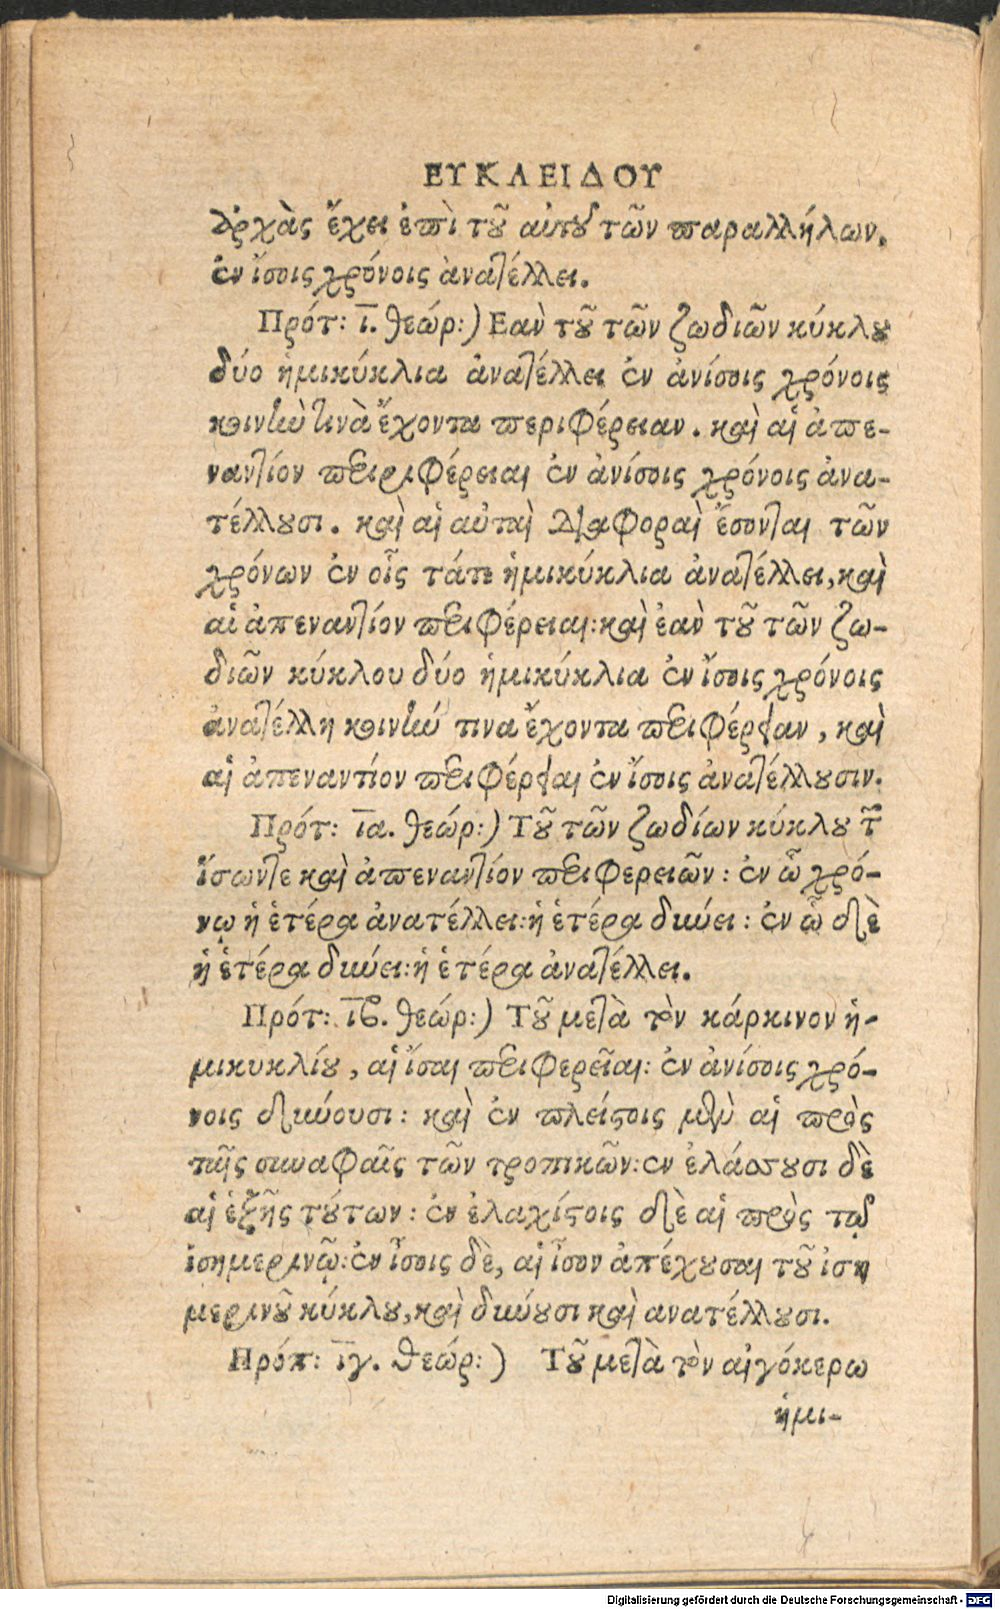 ΕΥΚΛΕΙΔΟΥ
ἀρχὰς ἔχει ἐπὶ τοῦ αὐτοῦ τῶν παραλλήλων,
ἐν ἴσοις χρόνοις ἀνατέλλει.
Πρότ: ι. θεώρ:) Εαν τοῦ τῶν ζωδιῶν κύκλου
δύο ἡμικύκλια ἀνατέλλει ἐν ἀνίσοις χρόνοις
κοινὴν τινὰ ἔχοντα περιφέρειαν. καὶ αἱ ἀπε-
ναντίον περιφέρειαι ἐν ἀνίσοις χρόνοις ἀνα-
τέλλουσι. καὶ αἱ αὐταὶ διαφοραὶ ἔσονται τῶν
χρόνων ἐν οἷς τάτε ἡμικύκλια ἀνατέλλει, καὶ
αἱ ἀπεναντίον περιφέρειαι: καὶ ἐὰν τοῦ τῶν ζω-
διῶν κύκλου δύο ἡμικύκλια ἐν ἴσοις χρόνοις
ἀνατέλλη κοινήν τινα ἔχοντα περιφέρειαν, καὶ
αἱ ἀπεναντίον περιφέρειαι ἐν ἴσοις ἀνατέλλουσιν.
Πρότ: ια. θεώρ:) Τοῦ τῶν ζωδίων κύκλου τῶν
ἴσωντε καὶ ἀπεναντίον περιφερειῶν: ἐν ᾧ χρό-
νῳ ἡ ἑτέρα ἀνατέλλει: ἡ ἑτέρα δύνει: ἐν ᾧ δὲ
ἡ ἑτέρα δύνει: ἡ ἑτέρα ἀνατέλλει.
Πρότ: ιβ. θεώρ:) Τοῦ μετὰ τὸν κάρκινον ἡ-
μικυκλίου, αἱ ἴσαι περιφερεῖαι: ἐν ἀνίσοις χρό-
νοις δύνουσι: καὶ ἐν πλείστοις μὲν αἱ πρὸς
ταῖς συναφαῖς τῶν τροπικῶν: ἐν ἐλάσσουσι δὲ
αἱ ἑξῆς τούτων: ἐν ἐλαχίστοις δὲ αἱ πρὸς τῷ
ἰσημερινῷ: ἐν ἴσοις δὲ, αἱ ἴσον ἀπέχουσαι τοῦ ἰση
μερινοῦ κύκλου, καὶ δύνουσι καὶ ανατέλλουσι.
Πρόπ: ιγ. θεώρ:) Τοῦ μετὰ τὸν αἰγόκερω
ἡμι-
Digitalisierung gefördert durch die Deutsche Forschungsgemeinschaft - DFG